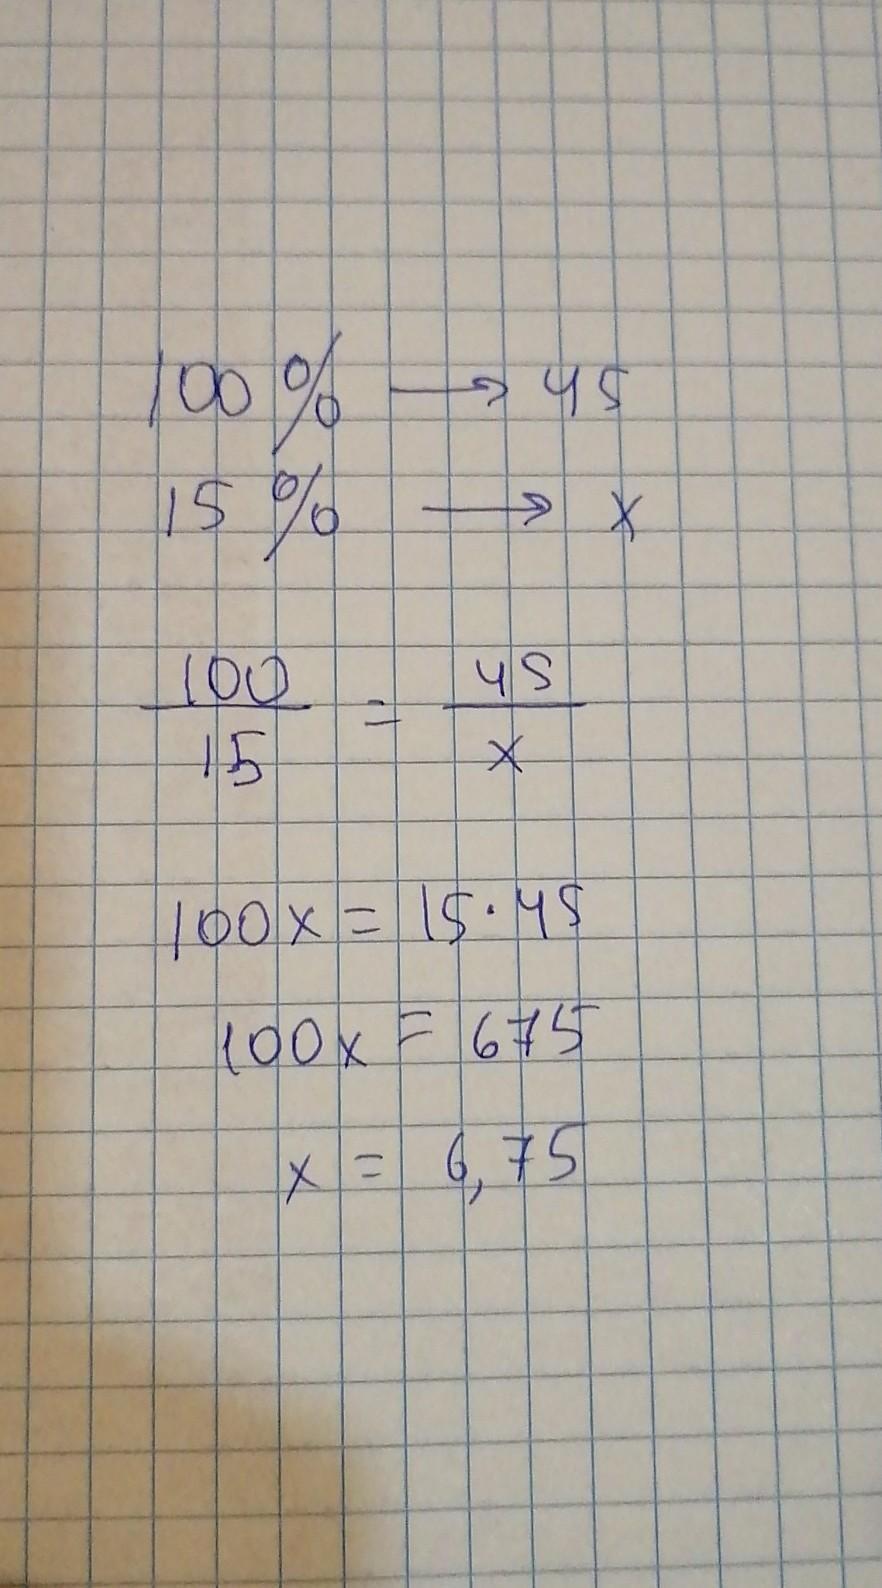 100% → 45
15% → x
100/15 = 45/x
100x = 15·45
100x = 675
x = 6,75